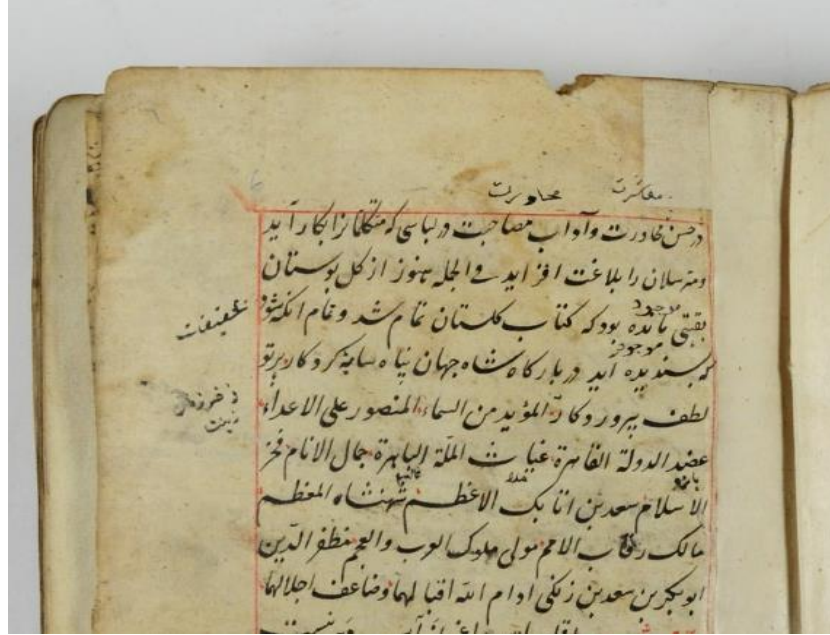 معاشرت محاورت
در حسن محاورت وآداب مصاحبت در لباسی که متکلمانرا بکار آید
ومترسلان را بلاغت افزاید فی الجمله هنوز از کل بوستان
موجود
بقیتی مانده بود که کتاب کلستان تمام شد وتمام انکه شود
که پسندیده آید در بارکاه شاه جهان پناه سایه کردکار پرتو
لطف پروردکار المؤید من السماء المنصور علی الاعداء
عضد الدولة القاهرة غیاث الملة الباهرة جمال الانام فخر
الاسلام سعد بن اتابک الاعظم شهنشاه المعظم
مالک رقاب الامم مولی ملوک العرب والعجم مظفر الدین
ابوبکر بن سعد بن زنکی ادام الله اقبالهما وضاعف اجلالهما